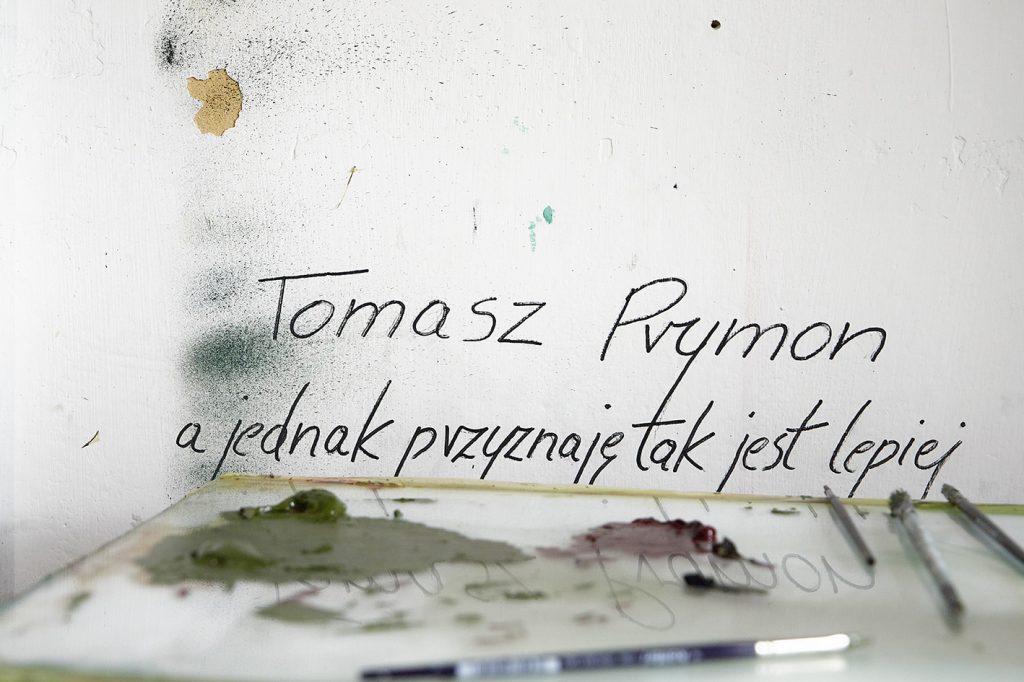 Tomasz Prymon
a jednak przyznaję tak jest lepiej